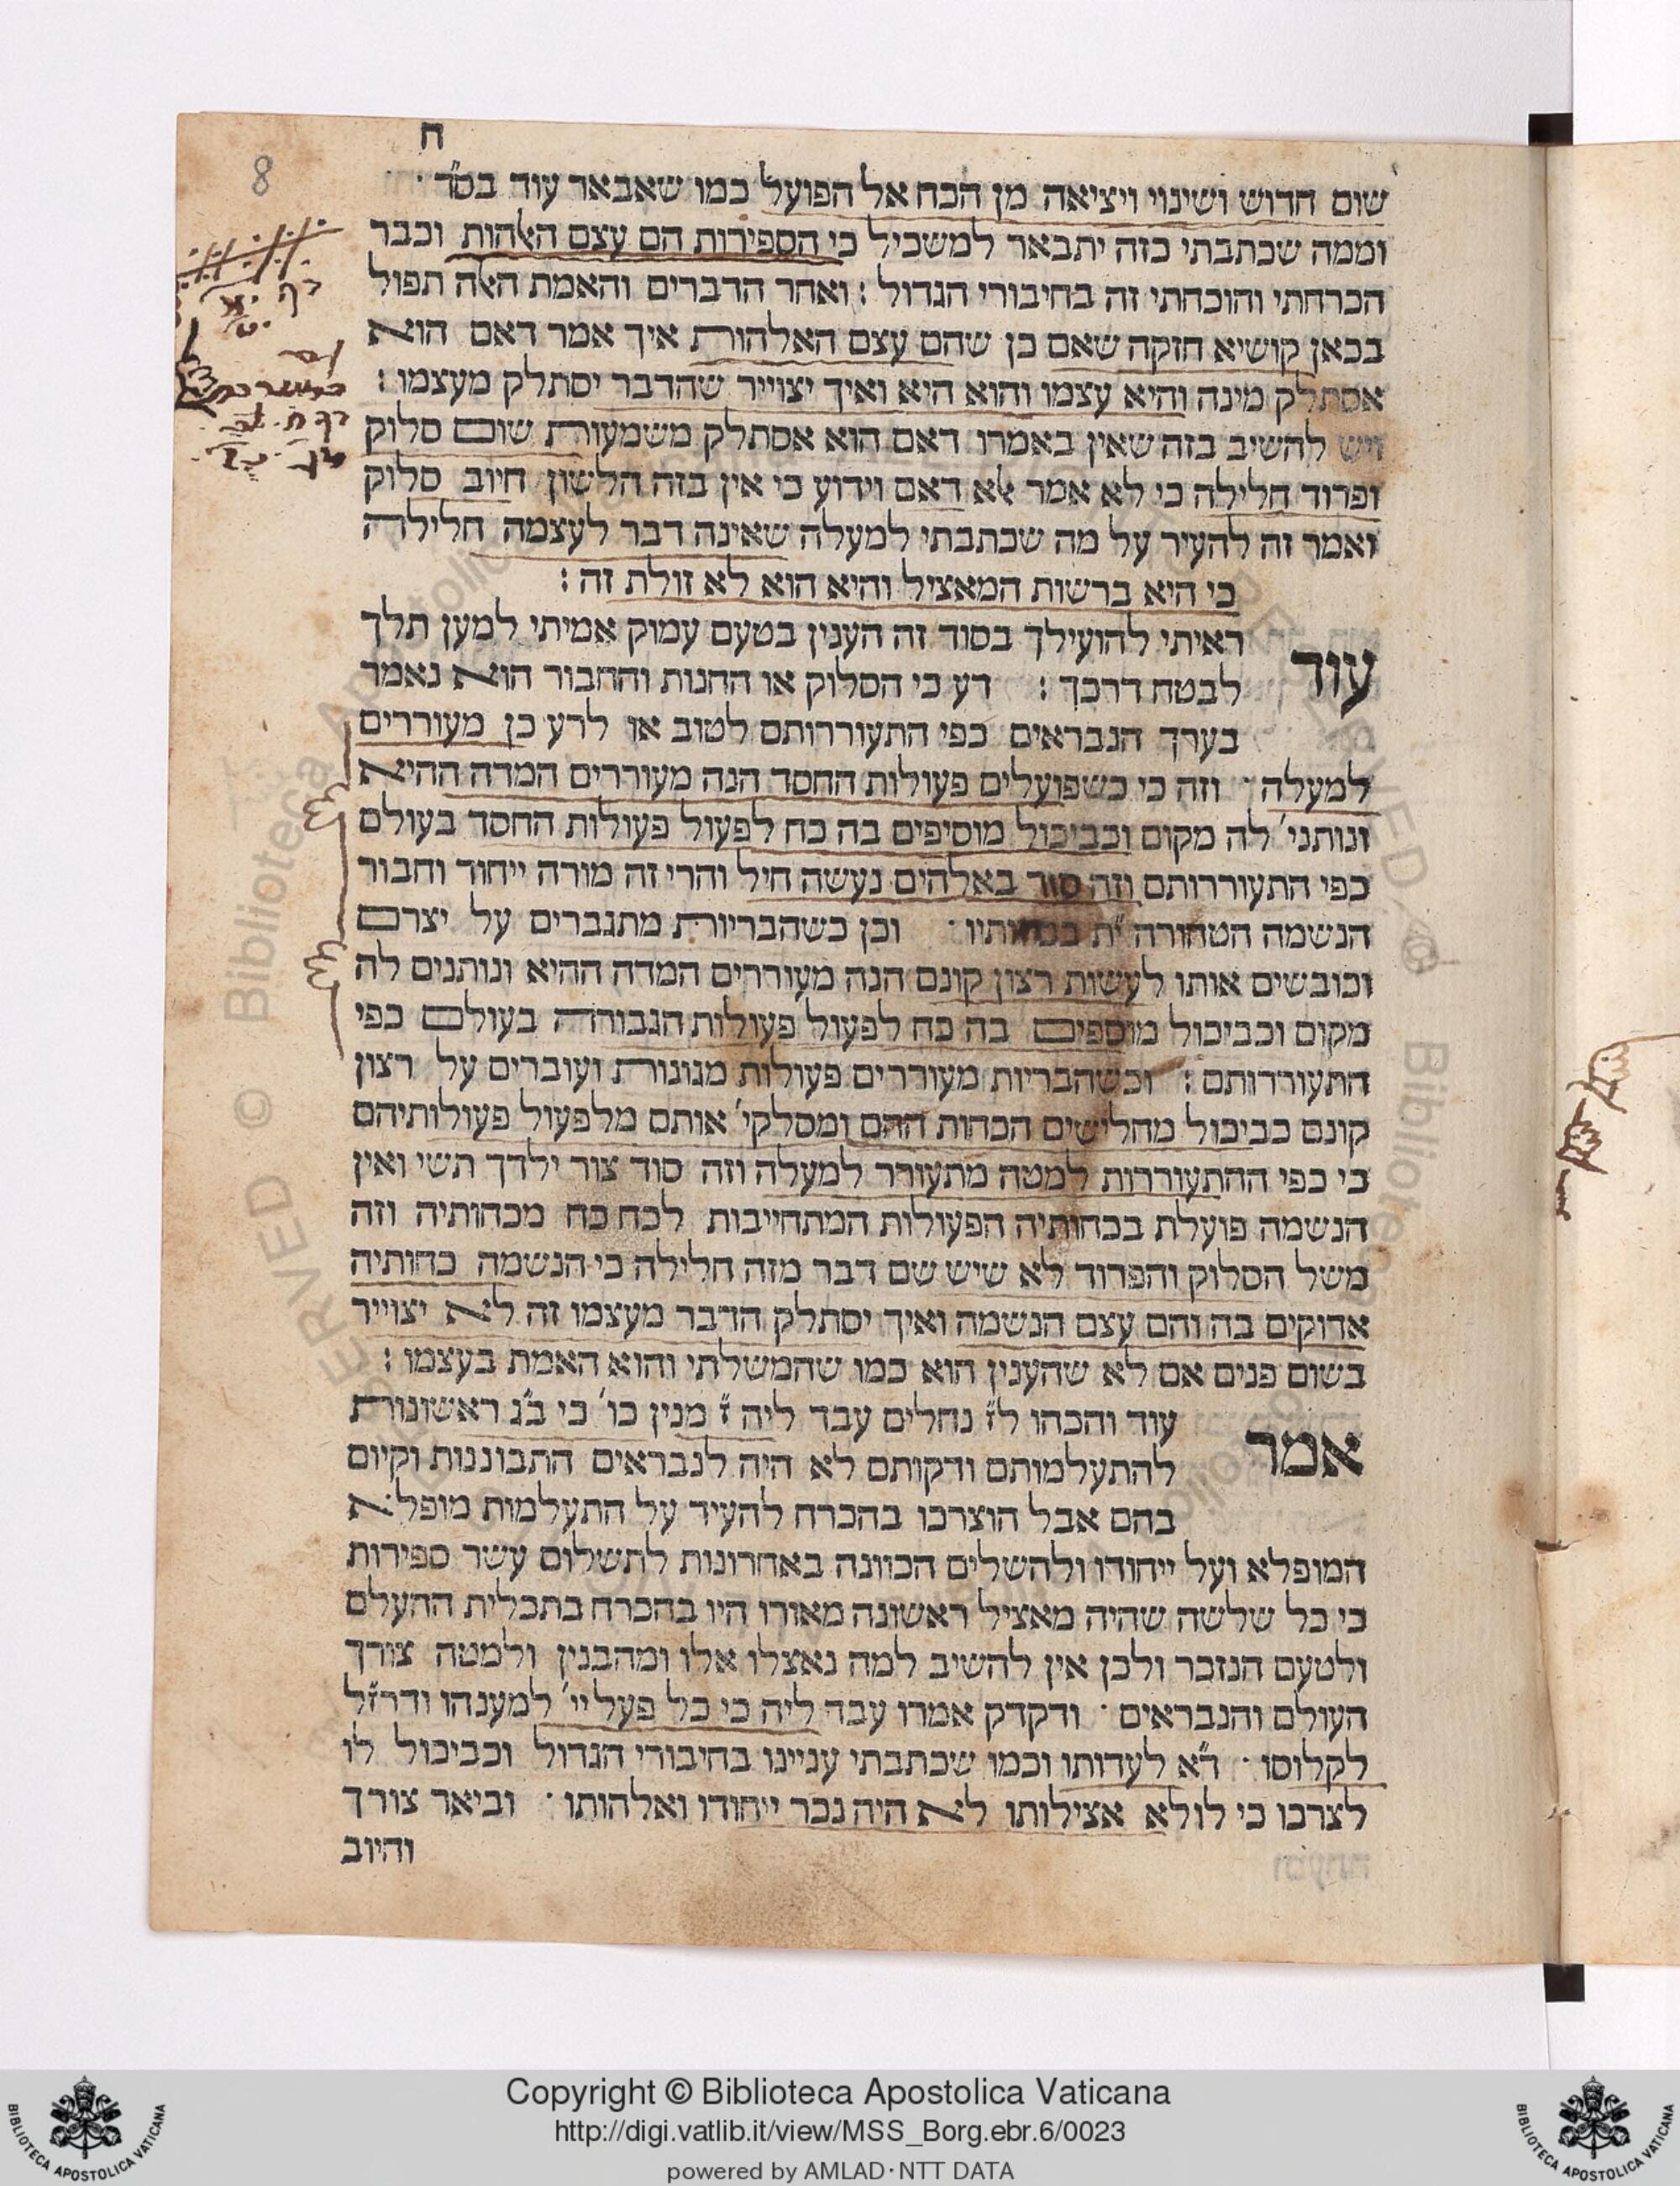 ח
8
שום חדוש ושינוי ויציאה מן הכח אל הפועל כמו שאבאר עוד בס״ד ·
וממה שכתבתי בזה יתבאר למשכיל כי הספירות הם עצם האלהות וכבר
הכרחתי והוכחתי זה בחיבורי הגדול : ואחר הדברים והאמת האלה תפול
בכאן קושיא חזקה שאם כן שהם עצם האלהות איך אמר דאם הוא
אסתלק מינה והיא עצמו והוא היא ואיך יצוייר שהדבר יסתלק מעצמו :
ויש להשיב בזה שאין באמרו דאם הוא אסתלק משמעות שום סלוק
ופרוד חלילה כי לא אמר אלא דאם וידוע כי אין בזה הלשון חיוב סלוק
ואמר זה להעיר על מה שכתבתי למעלה שאינה דבר לעצמה חלילה
כי היא ברשות המאציל והיא הוא לא זולת זה :
עוד ראיתי להועילך בסוד זה הענין בטעם עמוק אמיתי למען תלך
לבטח דרכך : דע כי הסלוק או החנות והחבור הוא נאמר
בערך הנבראים כפי התעוררותם לטוב או לרע כן מעוררים
למעלה · וזה כי כשפועלים פעולות החסד הנה מעוררים המדה ההיא
ונותני׳ לה מקום וכביכול מוסיפים בה כח לפעול פעולות החסד בעולם
כפי התעוררותם וזה סוד באלהים נעשה חיל והרי זה מורה ייחוד וחבור
הנשמה הטהורה ית׳ בכחותיו · וכן כשהבריות מתגברים על יצרם
וכובשים אותו לעשות רצון קונם הנה מעוררים המדה ההיא ונותנים לה
מקום וכביכול מוספים בה כח לפעול פעולות הגבורה בעולם כפי
התעוררותם : וכשהבריות מעוררים פעולות מגונות ועוברים על רצון
קונם כביכול מחלישים הכחות ההם ומסלקי׳ אותם מלפעול פעולותיהם
כי כפי ההתעוררות למטה מתעורר למעלה וזה סוד צור ילדך תשי ואין
הנשמה פועלת בכחותיה הפעולות המתחייבות לכח כח מכחותיה וזה
משל הסלוק והפרוד לא שיש שם דבר מזה חלילה כי הנשמה כחותיה
אדוקים בה והם עצם הנשמה ואיך יסתלק הדבר מעצמו זה לא יצוייר
בשום פנים אם לא שהענין הוא כמו שהמשלתי והוא האמת בעצמו :
אמר עוד והכהו לז״ נחלים עבד ליה ז״ מנין כו׳ כי בג״ ראשונות
להתעלמותם ודקותם לא היה לנבראים התבוננות וקיום
בהם אבל הוצרכו בהכרח להעיד על התעלמות מופלא
המופלא ועל ייחודו ולהשלים הכוונה באחרונות לתשלום עשר ספירות
כי כל שלשה שהיה מאציל ראשונה מאורו היו בהכרח בתכלית ההעלם
ולטעם הנזכר ולכן אין להשיב למה נאצלו אלו ומהבנין ולמטה צורך
העולם והנבראים · ודקדק אמרו עבד ליה כי כל פעל יי׳ למענהו ודרז״ל
לקלוסו · ד״א לעדותו וכמו שכתבתי עניינו בחיבורי הגדול וכביכול לו
לצרכו כי לולא אצילותו לא היה נכר ייחודו ואלהותו · וביאר צורך
והיוב
Copyright © Biblioteca Apostolica Vaticana
http://digi.vatlib.it/view/MSS_Borg.ebr.6/0023
powered by AMLAD·NTT DATA
BIBLIOTECA APOSTOLICA VATICANA
BIBLIOTECA APOSTOLICA VATICANA